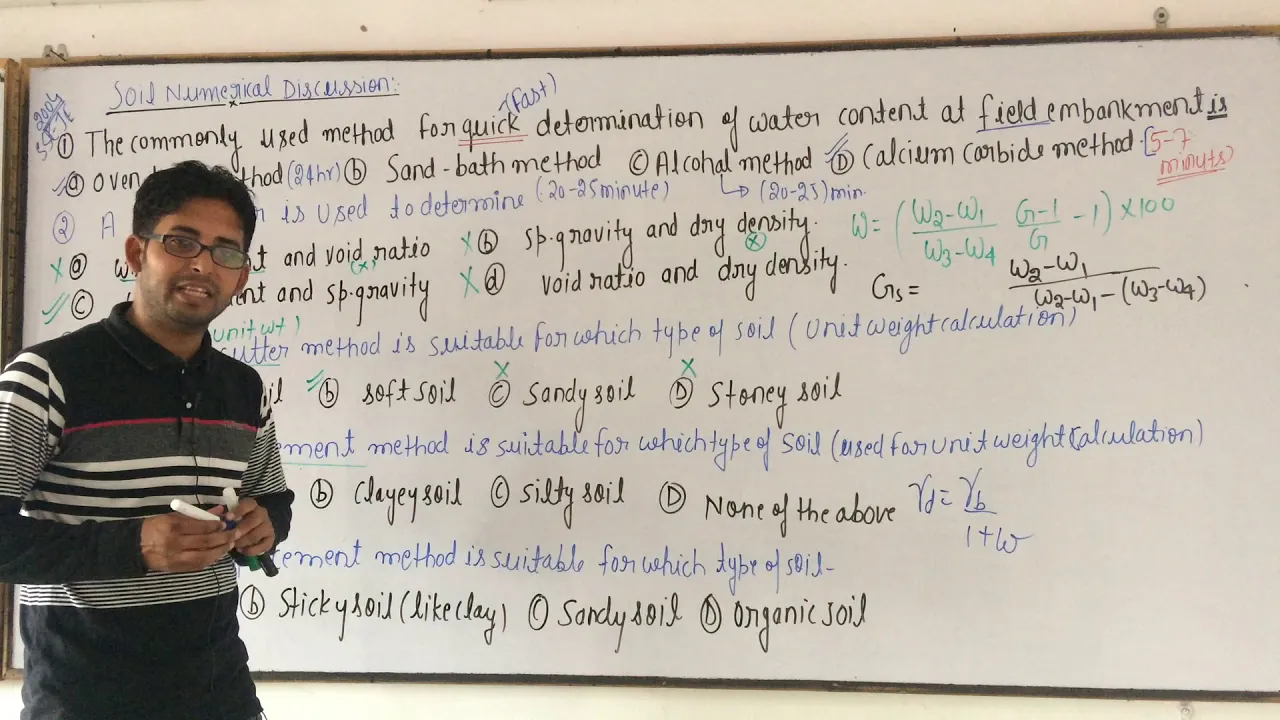 Soil Numerical Discussion:
2004
① The commonly used method for quick (fast) determination of water content at field embankment is
ⓐ oven method (24hr) ⓑ Sand-bath method ⓒ Alcohal method Ⓓ Calcium carbide method [5-7 minuts)
② A is used to determine (20-25 minute) → (20-25) min.
ⓐ and void ratio ⓑ sp.gravity and dry density.
ⓒ and sp.gravity ⓓ void ratio and dry density.
W = (W2-W1 / W3-W4 G-1 / G - 1) × 100
Gs = W2-W1 / W2-W1-(W3-W4)
unit wt)
cutter method is suitable for which type of soil (unit weight calculation)
ⓑ soft soil ⓒ Sandy soil Ⓓ Stoney soil
ement method is suitable for which type of soil (used for unit weight Calculation)
ⓑ Clayey soil ⓒ Silty soil Ⓓ None of the above
γd = γb / 1+w
cement method is suitable for which type of soil-
ⓑ Sticky soil (like clay) ⓒ Sandy soil Ⓓ organic soil